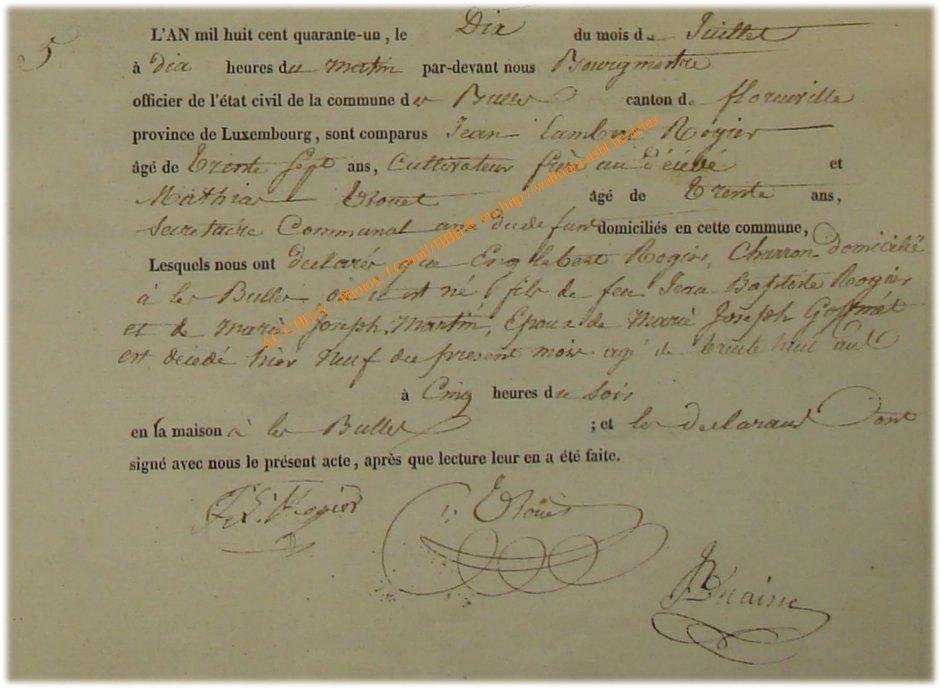 5
L'AN mil huit cent quarante-un, le Dix du mois de Juillet
à dix heures du matin par-devant nous Bourgmestre
officier de l'état civil de la commune des Bulles canton de florenville
province de Luxembourg, sont comparus Jean Lambert Rogier
âgé de trente sept ans, Cultivateur frère au décédé et
Mathias âgé de trente ans,
Secretaire Communal ami du defunt domiciliés en cette commune,
Lesquels nous ont declarés que Englebert Rogier, Charron domicilié
à les Bulles où il est né, fils de feu Jean Baptiste Rogier
et de Marie Joseph Martin, Epoux de Marie Joseph
est décédé hier neuf du présent mois agé de trente huit ans
à Cinq heures du soir
en la maison à les Bulles ; et les declarans ont
signé avec nous le présent acte, après que lecture leur en a été faite.
J. L. Rogier